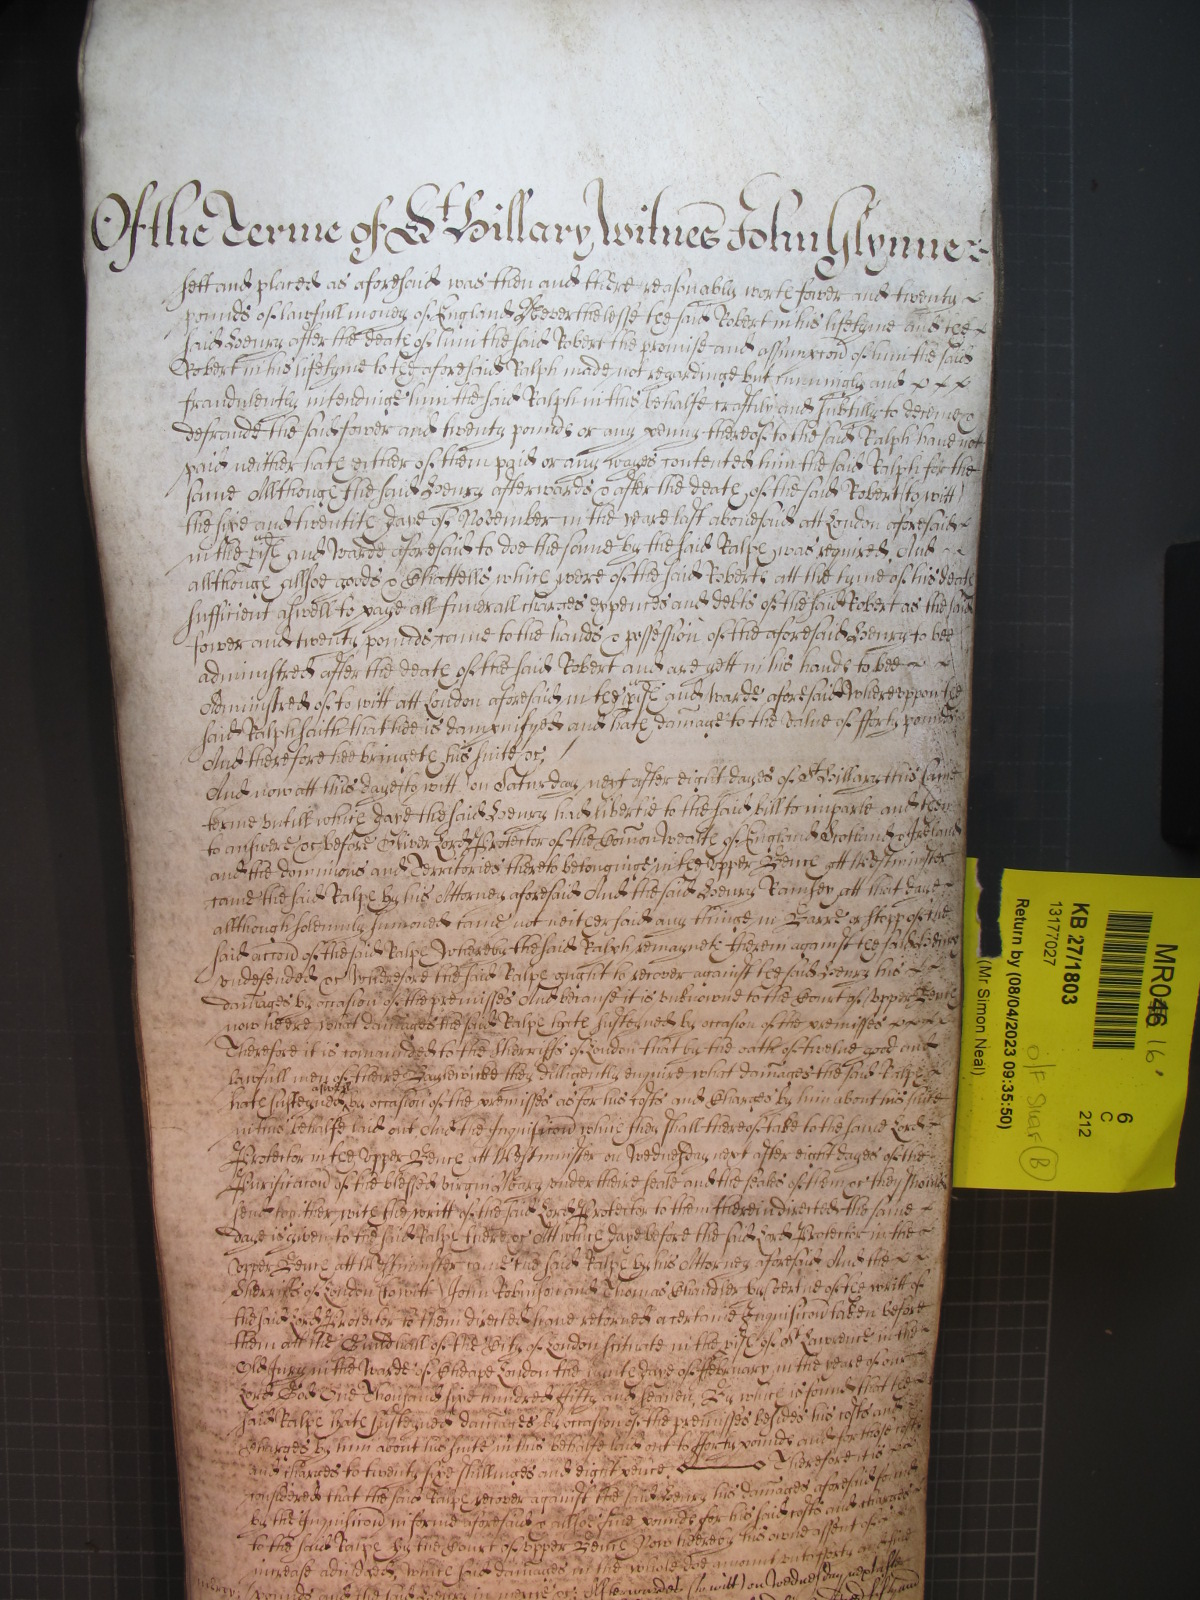 Of the Terme of St Hillary Witnes John Glynne
sett and placed as aforesaid was then and there reasonably worth fower and twenty
pounds of lawfull money of England Neverthelesse the said Robert in his lifetyme and the
said Henry after the death of him the said Robert the promise and assumpcon of him the said
Robert in his lifetyme to the aforesaid Ralph made not regardinge but cunningly and
fraudulently intendinge him the said Ralph in this behalfe craftily and subtilly to deceive &
defraude the said fower and twenty pounds or any penny thereof to the said Ralph have not
paid neither hath either of them paid or any wayes contented him the said Ralph for the
same Allthough the said Henry afterwards & after the death of the said Robert (to witt)
the sixe and twentith daye of November in the yeare last abovesaid att London aforesaid
in the pish and Warde aforesaid to doe the same by the said Ralph was required And
allthough allsoe goods & Chattells which were of the said Roberts att the tyme of his death
sufficient aswell to paye all funerall charges expences and debts of the said Robert as the said
fower and twenty pounds came to the hands & possession of the aforesaid Henry to bee
administred after the death of the said Robert and are yett in his hands to bee
Administred of to witt att London aforesaid in the pish and warde aforesaid Whereuppon the
said Ralph saith that hee is dampnifyed and hath damage to the value of fforty pounds
And therefore hee bringeth his suite &c
And now att this daye (to witt) on Saturday next after eight dayes of St Hillary this same
terme untill which daye the said Henry had libertie to the said bill to imparle and then
to answere &c before Oliver Lord Protector of the Comon Wealth of England Scotland & Ireland
and the dominions and Territories thereto belonginge in the upper Bench att Westminster
came the said Ralph by his Attorney aforesaid And the said Henry Ramsey att that daye
allthough solemnly sumoned came not neither said any thinge in Barre or stopp of the
said accon of the said Ralph Whereby the said Ralph remayneth therein against the said Henry
undefended &c Wherefore the said Ralph ought to recover against the said Henry his
damages by occasion of the premisses And because it is unknowne to the Court of upper Bench
now heere what damages the said Ralph hath susteyned by occasion of the premisses
Therefore it is comanded to the Sherriffs of London that by the oath of twelve good and
lawfull men of theire Baylewicke they dilligently enquire what damages the said Ralph
hath susteyned aswell by occasion of the premisses as for his costs and Charges by him about his suite
in this behalfe laid out And the Inquisicon which they shall thereof take to the same Lord
Protector in the upper Bench att Westminster on Wednesday next after eight dayes of the
Purificacon of the blessed virgin Mary under theire seale and the seales of them &c they should
send togither with the writt of the said Lord Protector to them therein directed the same
daye is given to the said Ralph there &c Att which daye before the said Lord Protector in the
upper Bench att Westminster came the said Ralph by his Attorney aforesaid And the
Sherriffs of London (to witt) John Robinson and Thomas Chandler by vertue of the writt of
the said Lord Protector to them directed have retorned a certaine Inquisicon taken before
them att the Guildhall of the City of London scituate in the pish of St Lawrence in the
Old Jury in the Warde of Cheape London the day of February in the yeare of our
Lord God One Thousand sixe hundred fifty and seaven By which is found that the
said Ralph hath susteyned damages by occasion of the premisses besides his costs and
Charges by him about his suite in this behalfe laid out to fforty pounds and for those costs
and charges to twenty sixe shillinges and eight pence Therefore it is
considered that the said Ralph recover against the said Henry his damages aforesaid found
by the Inquisicon in forme aforesaid & allsoe five pounds for his said costs and charges
to the said Ralph by the Court of upper Bench Now heere by his owne assent of
increase adiudged which said damages in the whole doe amount unto
pounds and the said Henry in mercy &c Afterwardes (to witt) on Wednesday next after
mercy
MR046 16
6
C
212
KB 27/1803
13177027
Return by (08/04/2023 09:35:50)
(Mr Simon Neal)
O/F
B